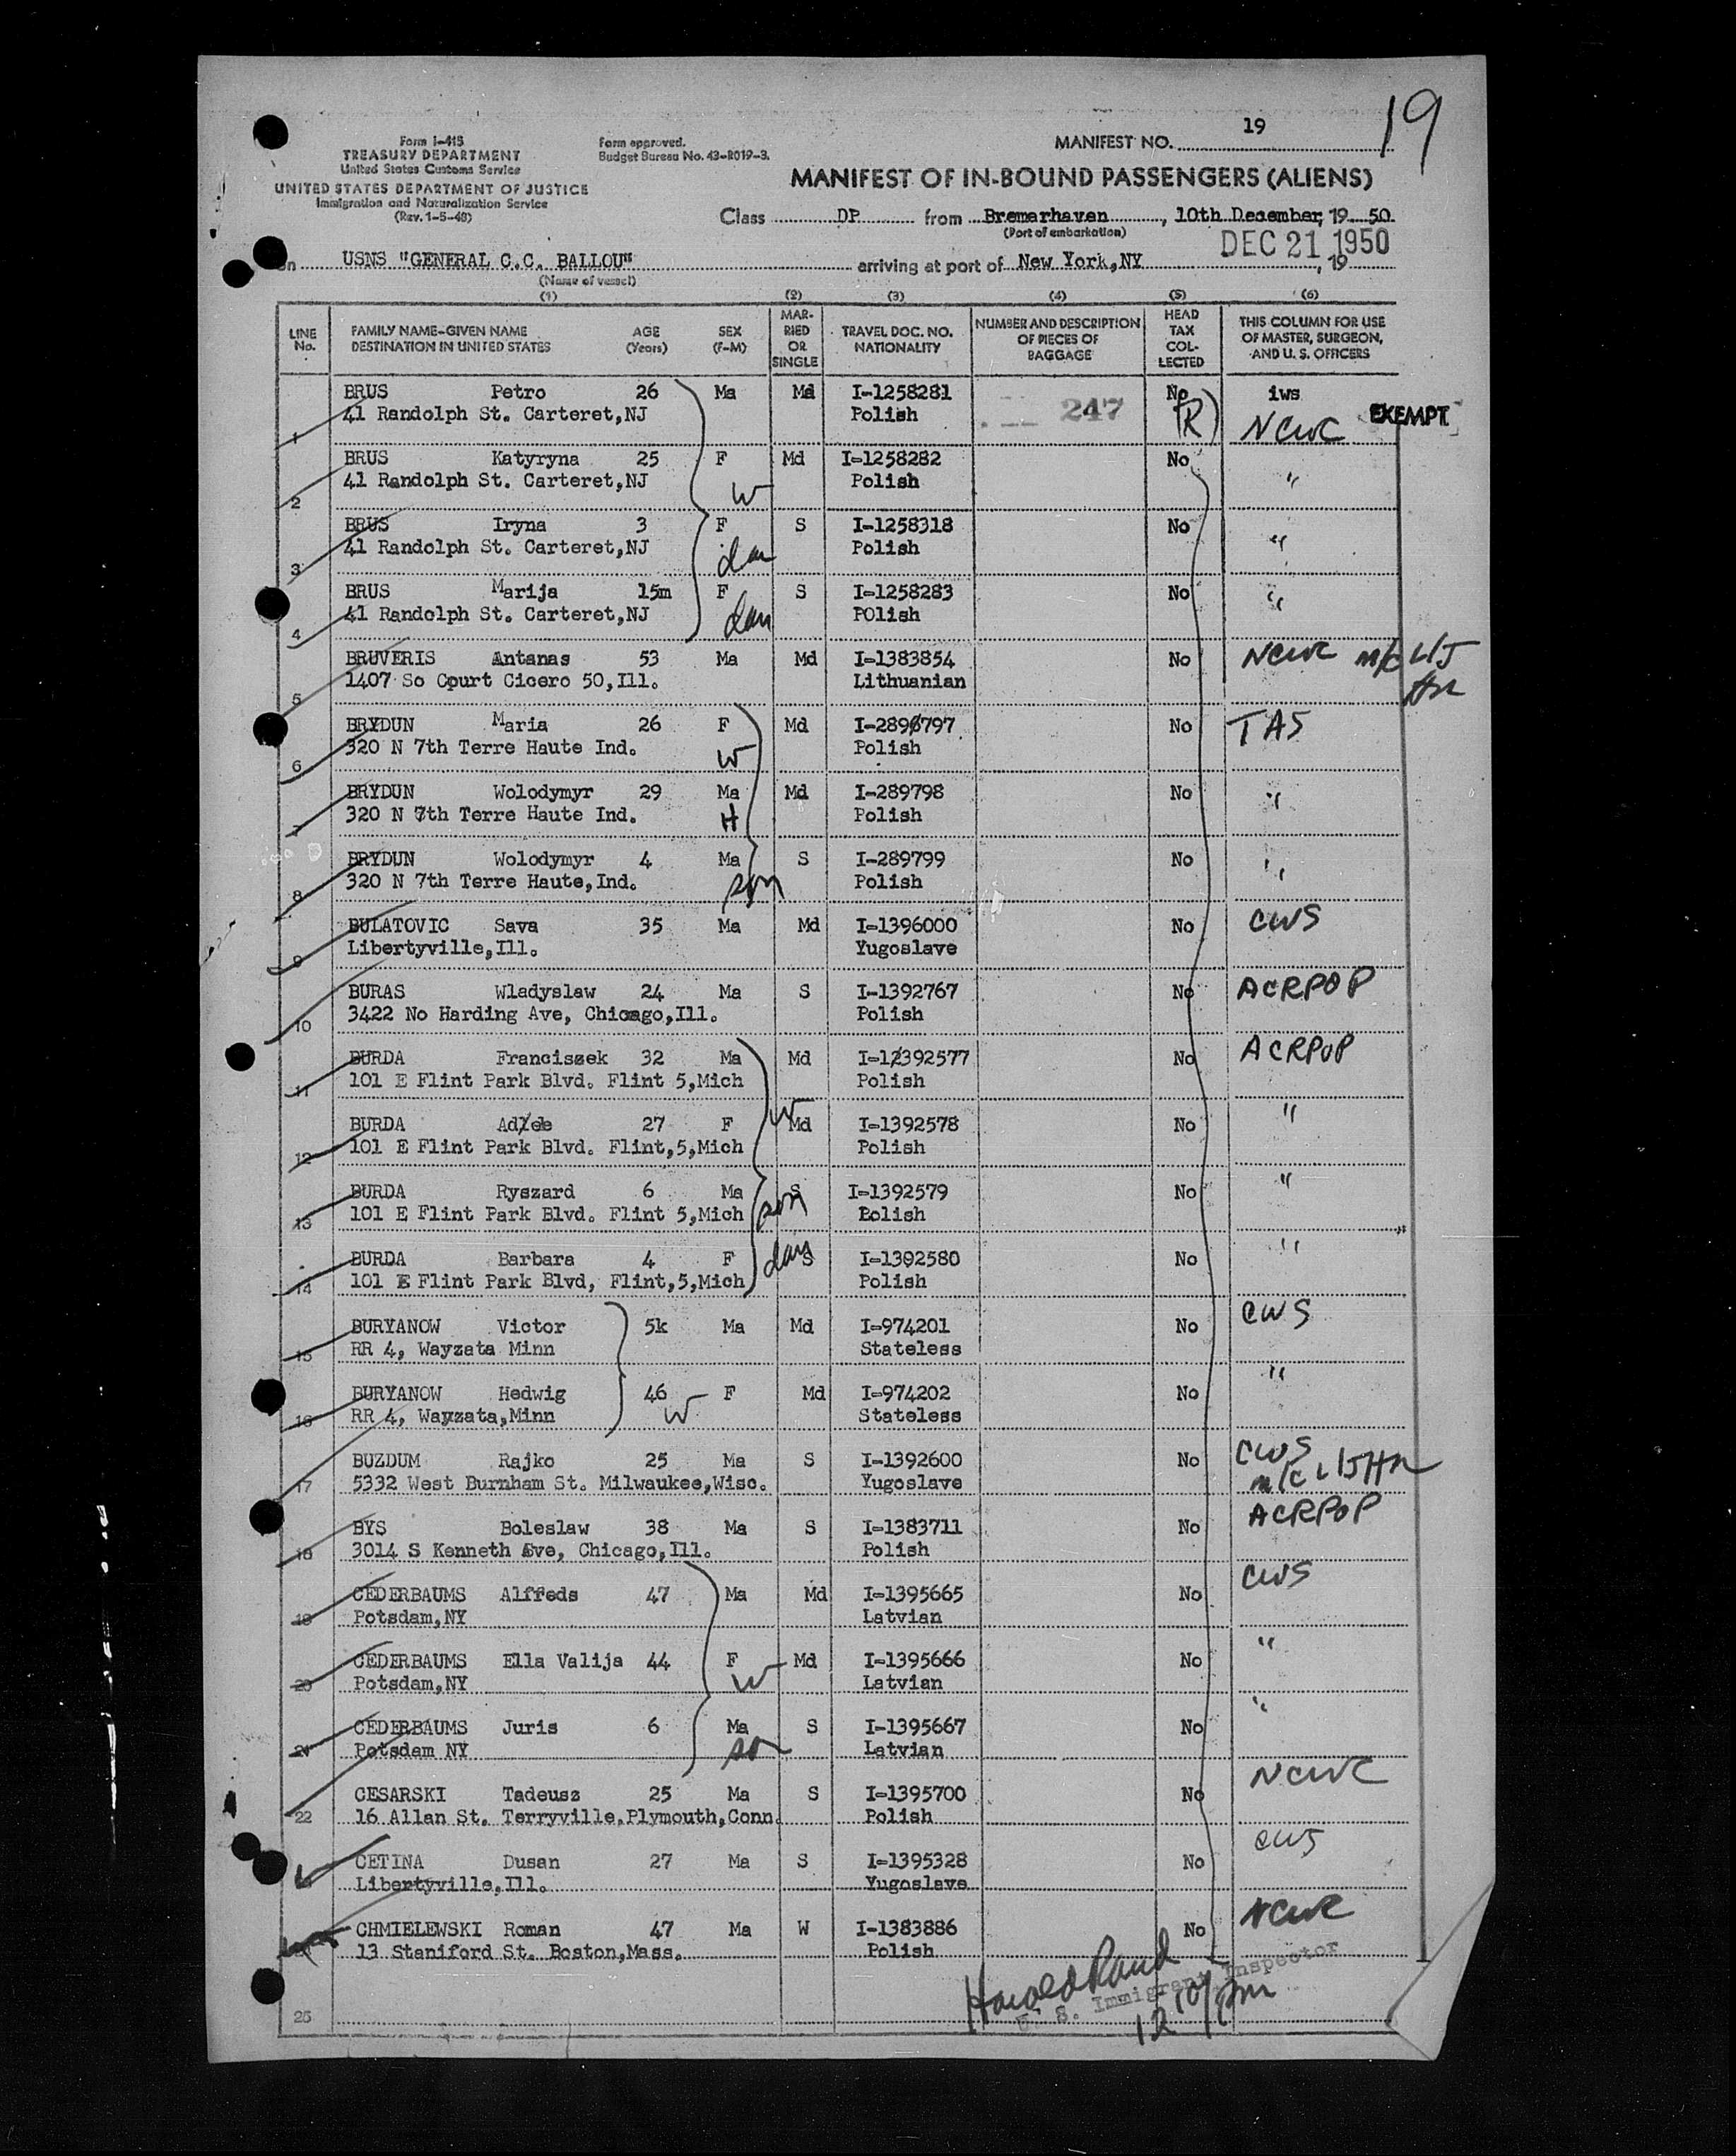 19
19
Form I-415
TREASURY DEPARTMENT
United States Customs Service
UNITED STATES DEPARTMENT OF JUSTICE
Immigration and Naturalization Service
(Rev. 1-5-48)
Form approved.
Budget Bureau No. 43-R019-3.
MANIFEST NO.
MANIFEST OF IN-BOUND PASSENGERS (ALIENS)
Class DP from Bremerhaven, 10th December, 19 50
(Port of embarkation)
DEC 21 1950
on USNS "GENERAL C.C. BALLOU" arriving at port of New York,NY , 19
(Name of vessel)
(1) (2) (3) (4) (5) (6)
LINE No. FAMILY NAME-GIVEN NAME DESTINATION IN UNITED STATES AGE (Years) SEX (F-M) MARRIED OR SINGLE TRAVEL DOC. NO. NATIONALITY NUMBER AND DESCRIPTION OF PIECES OF BAGGAGE HEAD TAX COLLECTED THIS COLUMN FOR USE OF MASTER, SURGEON, AND U. S. OFFICERS
1 BRUS Petro 26 Ma Md I-1258281 247 No iws
41 Randolph St. Carteret,NJ Polish (R) NCWC EXEMPT
2 BRUS Katyryna 25 F Md I-1258282 No "
41 Randolph St. Carteret,NJ W Polish
3 BRUS Iryna 3 F S I-1258318 No "
41 Randolph St. Carteret,NJ dau Polish
4 BRUS Marija 15m F S I-1258283 No "
41 Randolph St. Carteret,NJ dau POlish
5 BRUVERIS Antanas 53 Ma Md I-1383854 No NCWC m/c L/J
1407 So Court Cicero 50,Ill. Lithuanian Hn
6 BRYDUN Maria 26 F Md I-2896797 No TAS
320 N 7th Terre Haute Ind. W Polish
7 BRYDUN Wolodymyr 29 Ma Md I-289798 No "
320 N 7th Terre Haute Ind. H Polish
8 BRYDUN Wolodymyr 4 Ma S I-289799 No "
320 N 7th Terre Haute,Ind. son Polish
9 BULATOVIC Sava 35 Ma Md I-1396000 No CWS
Libertyville,Ill. Yugoslave
10 BURAS Wladyslaw 24 Ma S I-1392767 No ACRPOP
3422 No Harding Ave, Chicago,Ill. Polish
11 BURDA Franciszek 32 Ma Md I-12392577 No ACRPOP
101 E Flint Park Blvd. Flint 5,Mich Polish
12 BURDA F 27 W Md I-1392578 No "
101 E Flint Park Blvd. Flint,5,Mich Polish
13 BURDA Ryszard 6 Ma S I-1392579 No "
101 E Flint Park Blvd. Flint 5,Mich son Polish
14 BURDA Barbara 4 F S I-1392580 No "
101 E Flint Park Blvd, Flint,5,Mich dau Polish
15 BURYANOW Victor 5k Ma Md I-974201 No CWS
RR 4, Wayzata Minn Stateless
16 BURYANOW Hedwig 46 F Md I-974202 No "
RR 4, Wayzata,Minn W Stateless
17 BUZDUM Rajko 25 Ma S I-1392600 No CWS
5332 West Burnham St. Milwaukee,Wisc. Yugoslave m/c L/J Hn
18 BYS Boleslaw 38 Ma S I-1383711 No ACRPOP
3014 S Kenneth Ave, Chicago,Ill. Polish
19 CEDERBAUMS Alfreds 47 Ma Md I-1395665 No CWS
Potsdam,NY Latvian
20 CEDERBAUMS Ella Valija 44 F Md I-1395666 No "
Potsdam,NY W Latvian
21 CEDERBAUMS Juris 6 Ma S I-1395667 No "
Potsdam NY son Latvian
22 CESARSKI Tadeusz 25 Ma S I-1395700 No NCWC
16 Allan St. Terryville,Plymouth,Conn. Polish
CETINA Dusan 27 Ma S I-1395328 No CWS
Libertyville,Ill. Yugoslave
CHMIELEWSKI Roman 47 Ma W I-1383886 No NCWC
13 Staniford St. Boston,Mass. Polish
25
Harold Rand
U. S. Immigrant Inspector
12